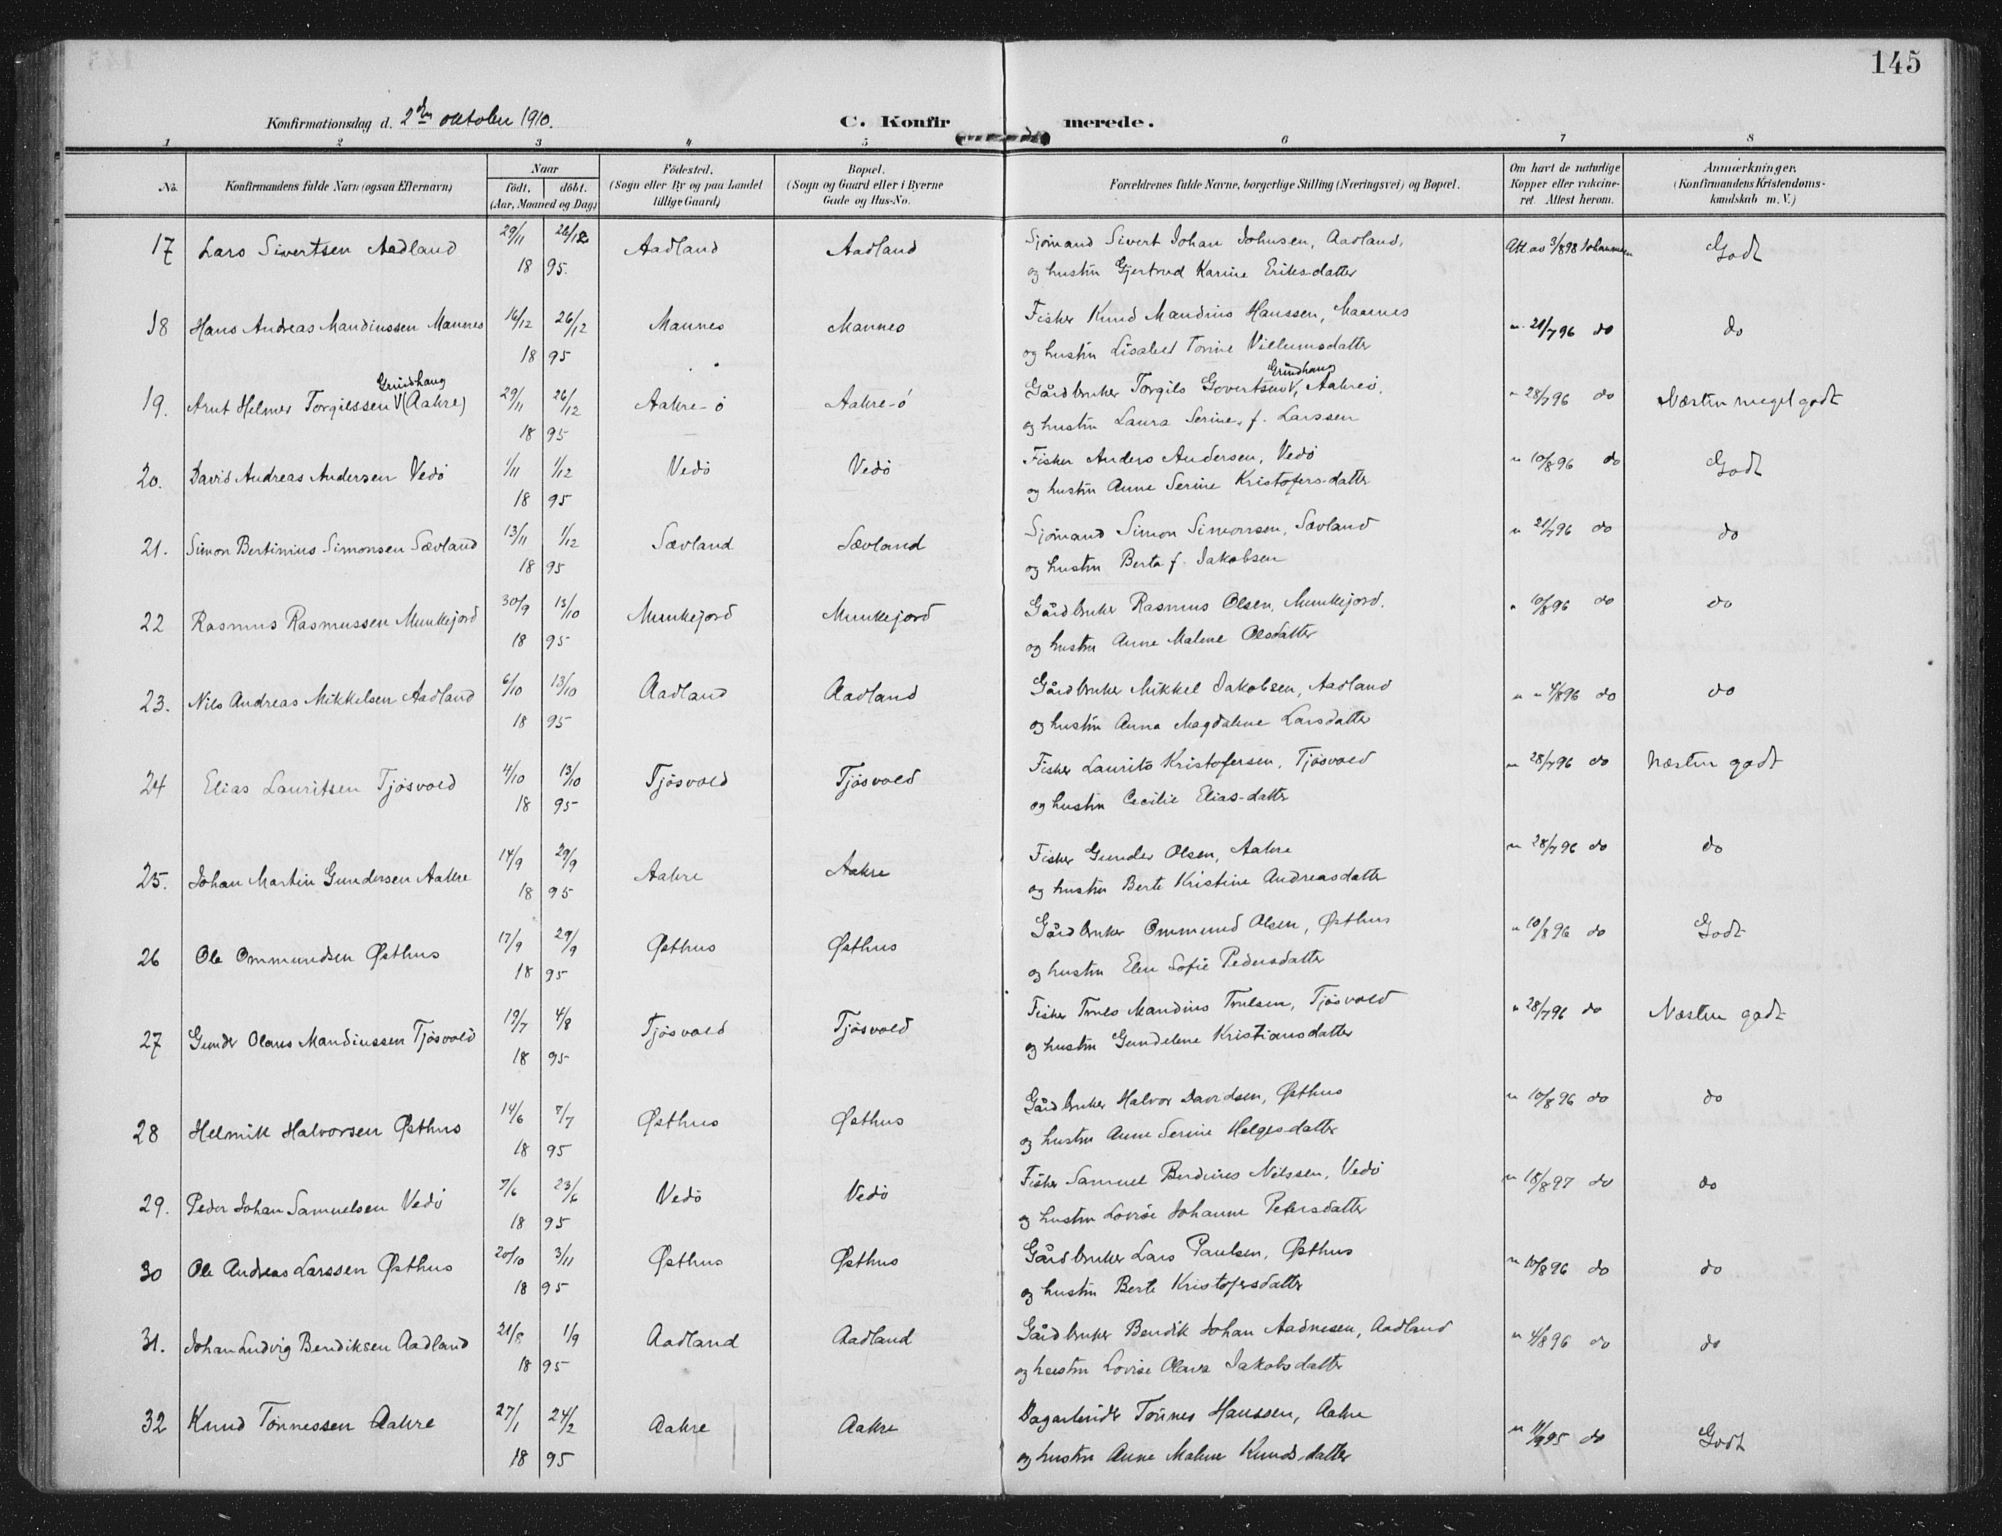 145
Konfirmationsdag d. 2den oktober 1910.
C. Konfirmerede.
1 2 3 4 5 6 7 8
No. Konfirmandens fulde Navn (ogsaa Efternavn) Naar født, døbt. (Aar, Maaned og Dag) Födested. (Sogn eller By og paa Landet tillige Gaard) Bopæl. (Sogn og Gaard eller i Byerne Gade og Hus-No. Forældrenes fulde Navne, borgerlige Stilling (Næringsvei) og Bopæl. Om havt de naturlige Kopper eller vakcineret. Attest herom. Anmærkninger. (Konfirmandens Kristendomskundskab m. V.)
17 Lars Sivertsen Aadland 29/11 26/12 Aadland Aadland Sjømand Sivert Johan Johnsen, Aadland, Att. av 3/898 Johannesen Godt
18 95. og hustru Gjertrud Karine Eriks-datter
18 Hans Andreas Mandiussen Mannes 16/12 26/12 Mannes Mannes Fisker Knud Mandius Hanssen, Mannes " 21/796 do do
18 95 og hustru Lisabet Torine Villumsdatter
19. Arnt Helmer Torgilssen Grindhaug (Aakre) 29/11 26/12 Aakre-ö Aakre-ö Gårdbruker Torgils Govertsen Grindhaug, Aakreö, " 28/796 do Næsten meget godt
18 95 og hustru Laura Serine, f. Larssen
20. David Andreas Andersen Vedö 1/11 1/12 Vedö Vedö Fisker Anders Andersen, Vedö " 10/896 do Godt
18 95 og hustru Anne Serine Kristofers-datter
21. Simon Bertinius Simonsen Sævland 13/11 1/12 Sævland Sævland Sjømand Simon Simonsen, Sævland " 21/796 do do
18 95 og hustru Berta f. Jakobsen
22 Rasmus Rasmussen Munkejord 30/9 13/10 Munkejord Munkejord Gårdbruker Rasmus Olsen, Munkejord. " 10/896 do do
18 95 og hustru Anne Malene Olsdatter
23. Nils Andreas Mikkelsen Aadland 6/10 13/10 Aadland Aadland Gårdbruker Mikkel Jakobsen, Aadland " " 4/896 do do
18 95 og hustru Anna Magdalene Larsdatter
24 Elias Lauritsen Tjösvold 4/10 13/10 Tjösvold Tjösvold Fisker Laurits Kristofersen, Tjösvold " 28/796 do Næsten godt
18 95 og hustru Cecilie Elias-datter
25. Johan Martin Gundersen Aakre 14/9 29/9 Aakre Aakre Fisker Gunder Olsen, Aakre " 28/796 do do
18 95 og hustru Berte Kristine Andreasdatter
26 Ole Ommundsen Østhus 17/9 29/9 Østhus Østhus Gårdbruker Ommund Olsen, Østhus " 10/896 do Godt
18 95 og hustru Elen Sofie Pedersdatter
27 Gunder Olaus Mandiussen Tjösvold 19/7 4/8 Tjösvold Tjösvold Fisker Truls Mandius Trulsen, Tjösvold " 28/796 do Næsten godt
18 95 og hustru Gundelene Kristiansdatter
28 Helmik Halvorsen Østhus 14/6 7/7 Østhus Østhus Gårdbruker Halvor Davidsen, Østhus " 10/896 do do
18 95 og hustru Anne Serine Helges-datter
29. Peder Johan Samuelsen Vedö 7/6 23/6 Vedö Vedö Fisker Samuel Berdines Nilssen, Vedö " 18/897 do do
18 95 og hustru Lovise Johanne Petersdatter
30 Ole Andreas Larssen Østhus 20/10 3/11 Østhus Østhus Gårdbruker Lars Paulsen, Østhus " 10/896 do do
18 95 og hustru Berte Kristofersdatter
31. Johan Ludvig Bendiksen Aadland 21/8 1/9 Aadland Aadland Gårdbruker Bendik Johan Aadnesen, Aadland " 4/896 do do
18 95 og hustru Lovise Olava Jakobsdatter
32 Knud Tönnessen Aakre 27/1 24/2 Aakre Aakre Dagarbeider Tönnes Hanssen, Aakre " 11/995 do Godt
18 95 og hustru Anne Malene Knuds-datter